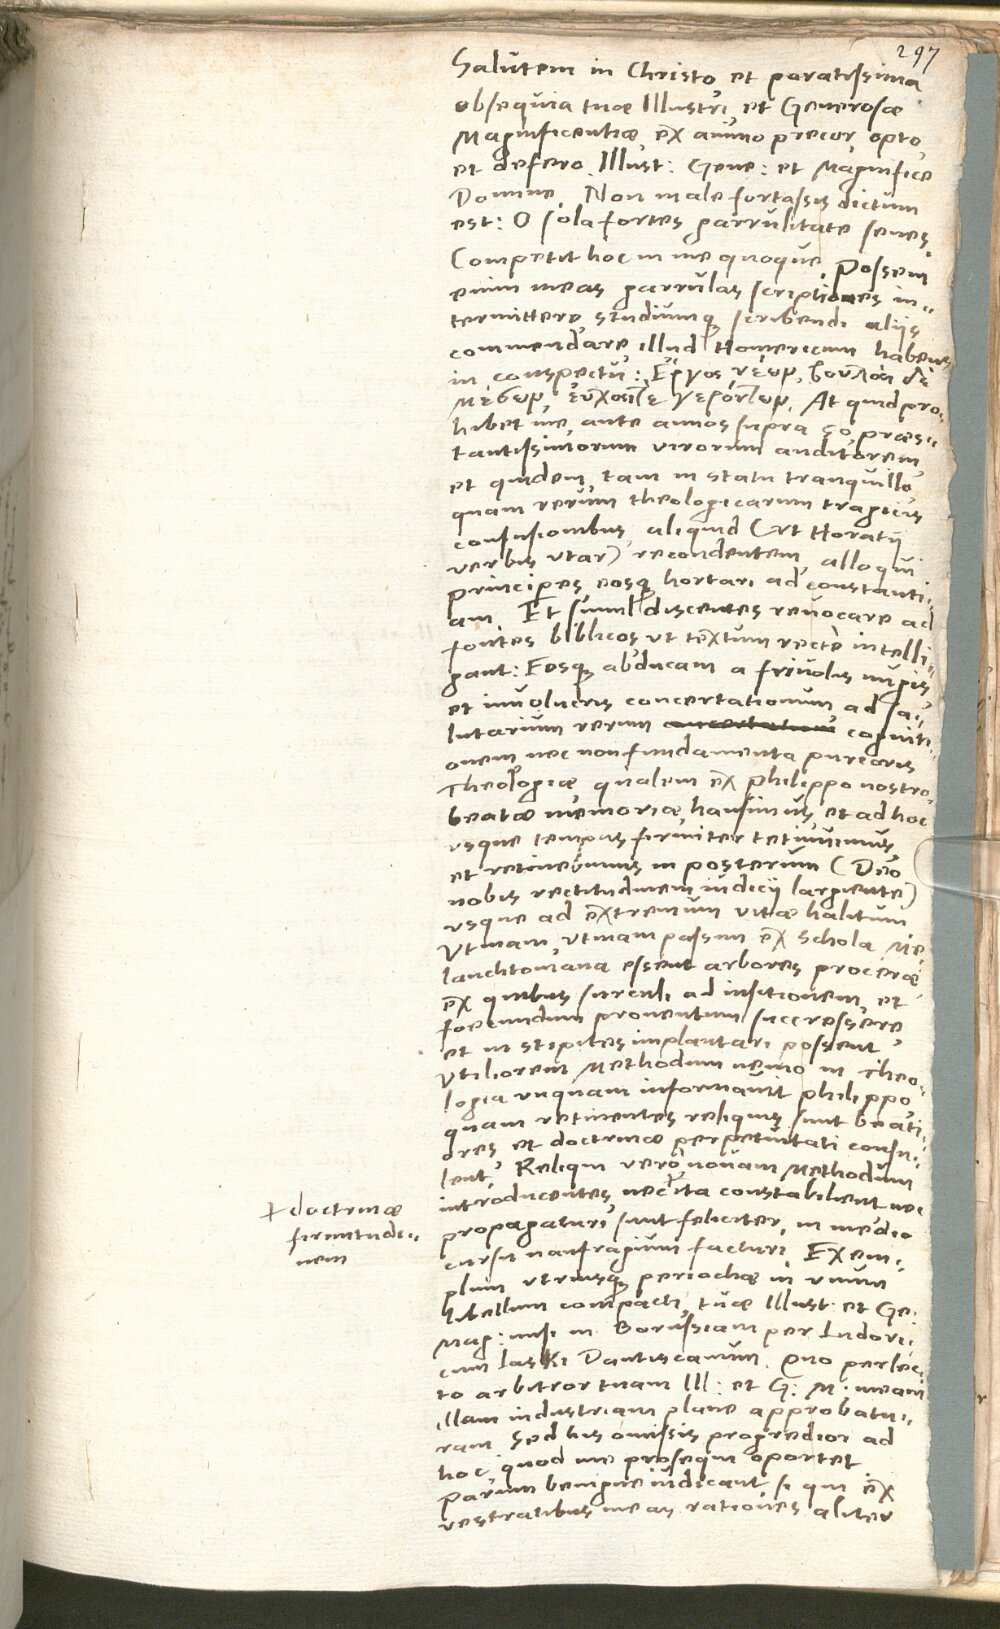 297
Salutem in Christo et paratissima
obsequia tuæ Illustri et Generosæ
Magnificentiæ ex animo precor, opto,
et defero. Illust: Gene: et Magnifice
Domine. Non male fortassis dictum
est: O sola fortes garrulitate senes.
Competit hoc in me quoque. Possem
enim meas garrulas scriptiones in„
termittere studiumq scribendi aliis
commendare illud Homericum habens
in conspectu: Ἔργος νέωρ, βουλαὶ δὲ
μέσωρ, εὐχαὶ τε γερόντωρ. At quid pro„
hibet me, ante annos supra 50, præs„
tantissimorum virorum auditorem
et quidem, tam in statu tranquillo
quam rerum theologicarum tragicis
confusionibus aliquid (vt Horatij
verbis vtar) recondentem, alloqui
principes eosq hortari ad constanti„
am. Et simul discentes reuocare ad
fontes biblicos vt textum rectè intelli„
gant: Eosq abducam a friuolis nugis
et inuolucris concertationum ad sa„
lutarium rerum cogniti„
onem nec non fundamenta purioris
Theologiæ qualem ex Philippo nostro
beatæ memoriæ hausimus, et ad hoc
vsque tempus firmiter tetinuimus
et retinebimus in posterum (Deo
nobis rectitudinem iudicij largiente)
vsque ad extremum vitæ halitum
Vtinam, vtinam passim ex schola Me„
lanchtoniana essent arbores proceræ
ex quibus surculi ad insitionem et
foecundum prouentum succrescere
et in stipites implantari possent
Vtiliorem Methodum nemo in Theo„
logia vnquam informauit Philippo
quam retinentes reliquis sunt beati„
ores et doctrinæ perpetuitati consu„
lent. Reliqui verò nouam Methodum
introducentes nec ita constabilient nec
propagaturi sunt feliciter, in medio
cursu naufragium facturi. Exem„
plum vtriusq periochæ in vnum
libellum compacti, tuæ Illust. et Ge:
Mag: misi in Borussiam per Ludoui„
cum Laski Dantiscanum. Quo perlec„
to arbitror tuam Ill: et G: M: meam
illam industriam plane approbatu„
ram. Sed his omissis progredior ad
hoc, quod me prosequi oportet.
Parum benigne iudicant si qui ex
vestratibus meas rationes aliter
+ doctrinæ
firmitudi„
nem